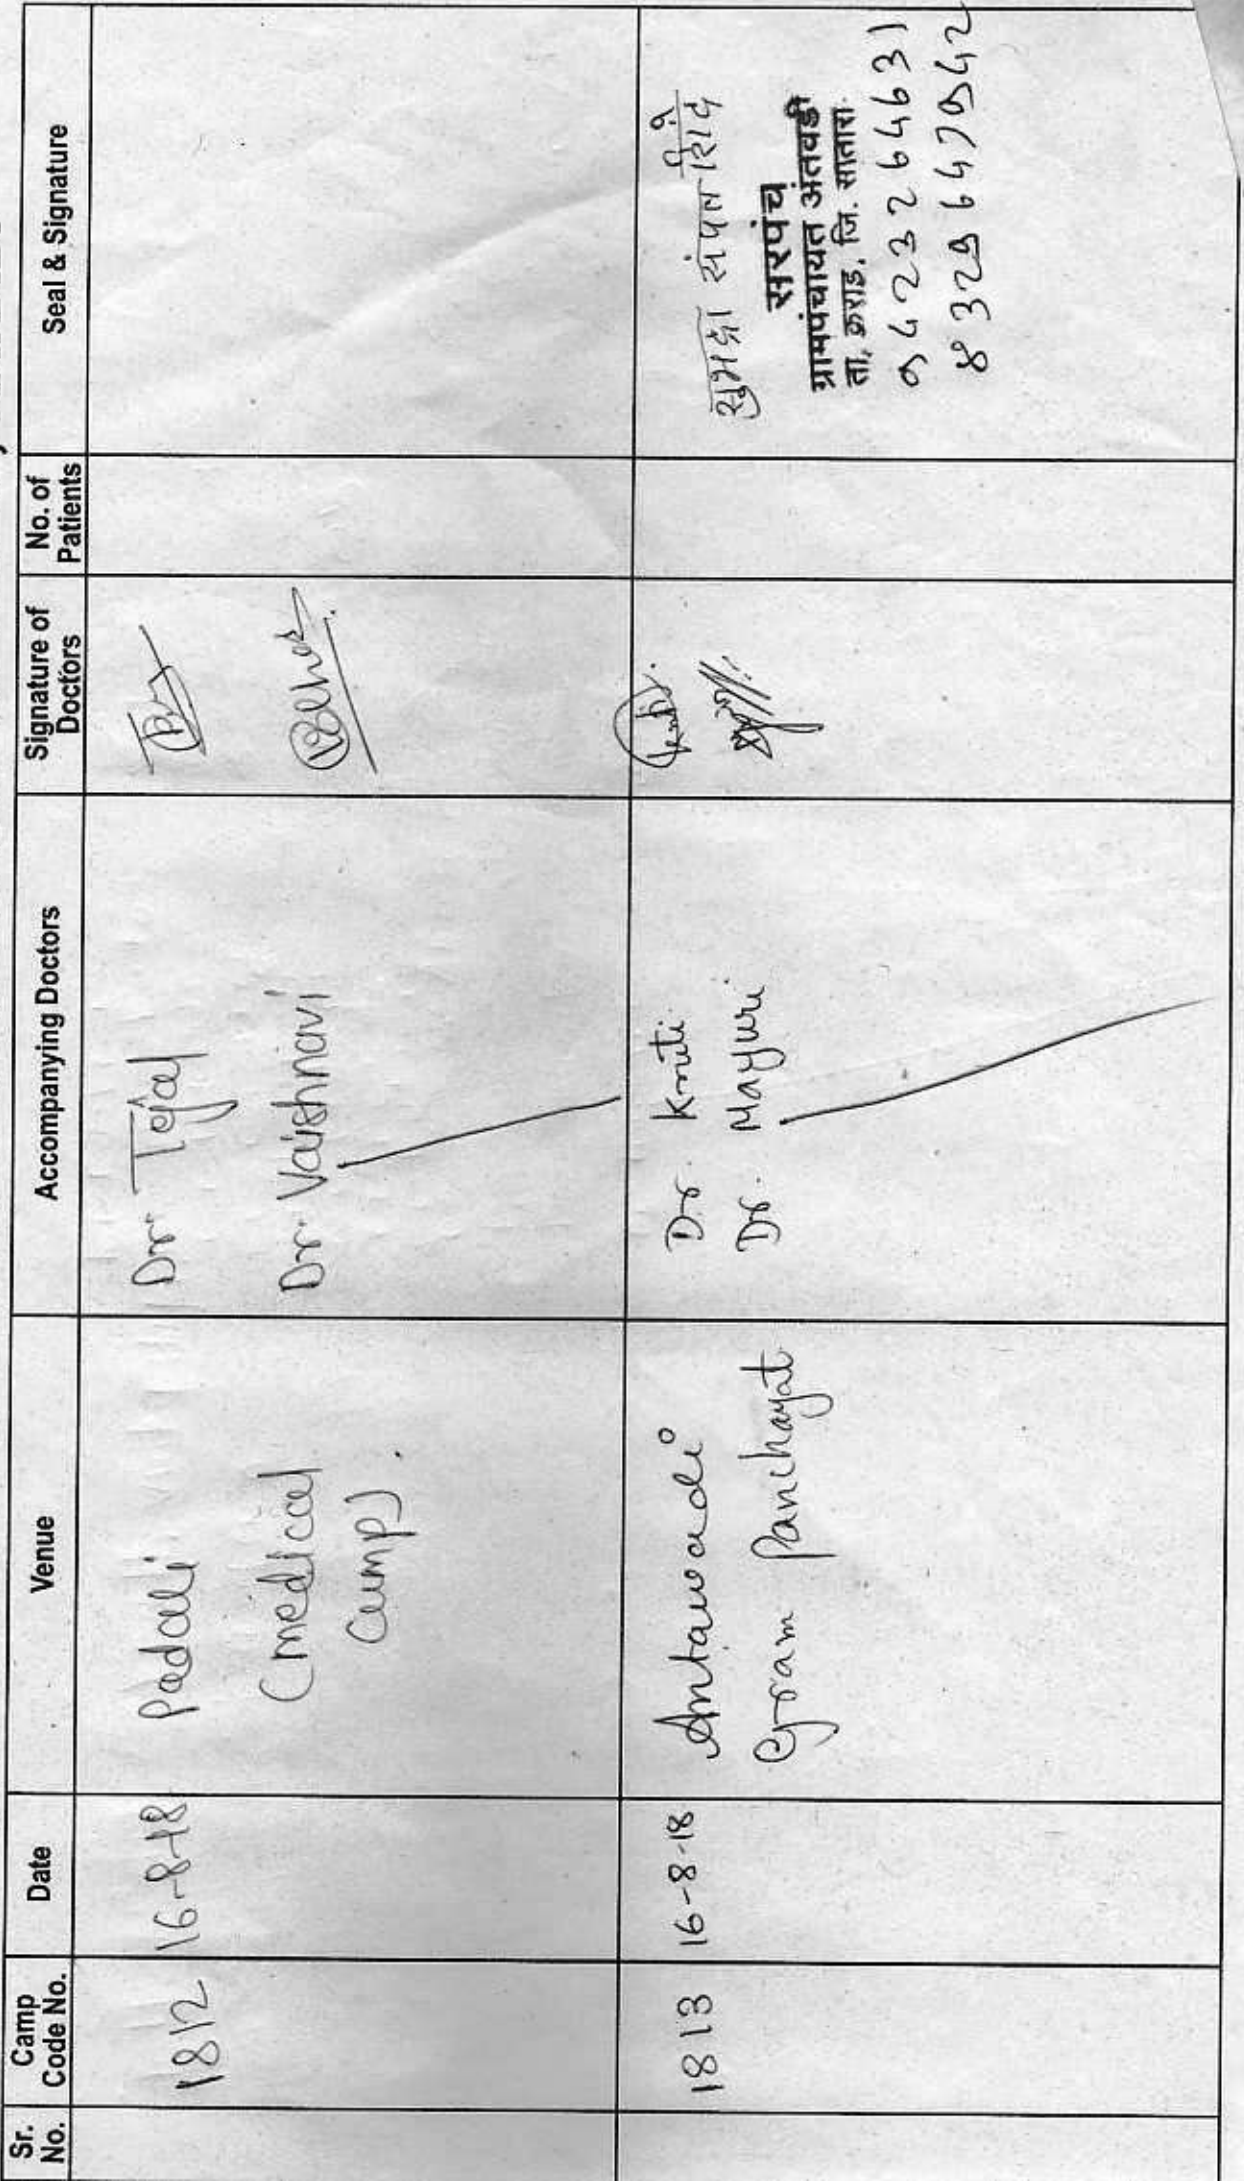 Sr. No.
Camp Code No.
Date
Venue
Accompanying Doctors
Signature of Doctors
No. of Patients
Seal & Signature
1812
16-8-18
Padali
(medical
camp)
Dr. Tejal
Dr. Vaishnavi
1813
16-8-18
Antawadi
Gram Panchayat
Dr. Kruti
Dr. Mayuri
सुभद्रा संपत शिंदे
सरपंच
ग्रामपंचायत अंतवडी
ता. कराड, जि. सातारा.